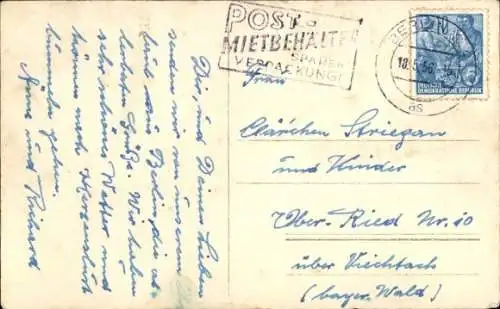 POST-
MIETBEHÄLTER
SPAREN
VERPACKUNG!
BERLIN
18.5.56
as
DEUTSCHE
DEMOKRATISCHE REPUBLIK
Dir und Deinen Lieben
senden wir von unserem
Berlin, die
Grüße. Wir haben
sehr schönes Wetter und
können nach Herzenslust
bummeln gehen.
und Richard
Frau
Clärchen Striegan
und Kinder
Ober-Ried Nr. 10
über Viechtach
(bayer. Wald)